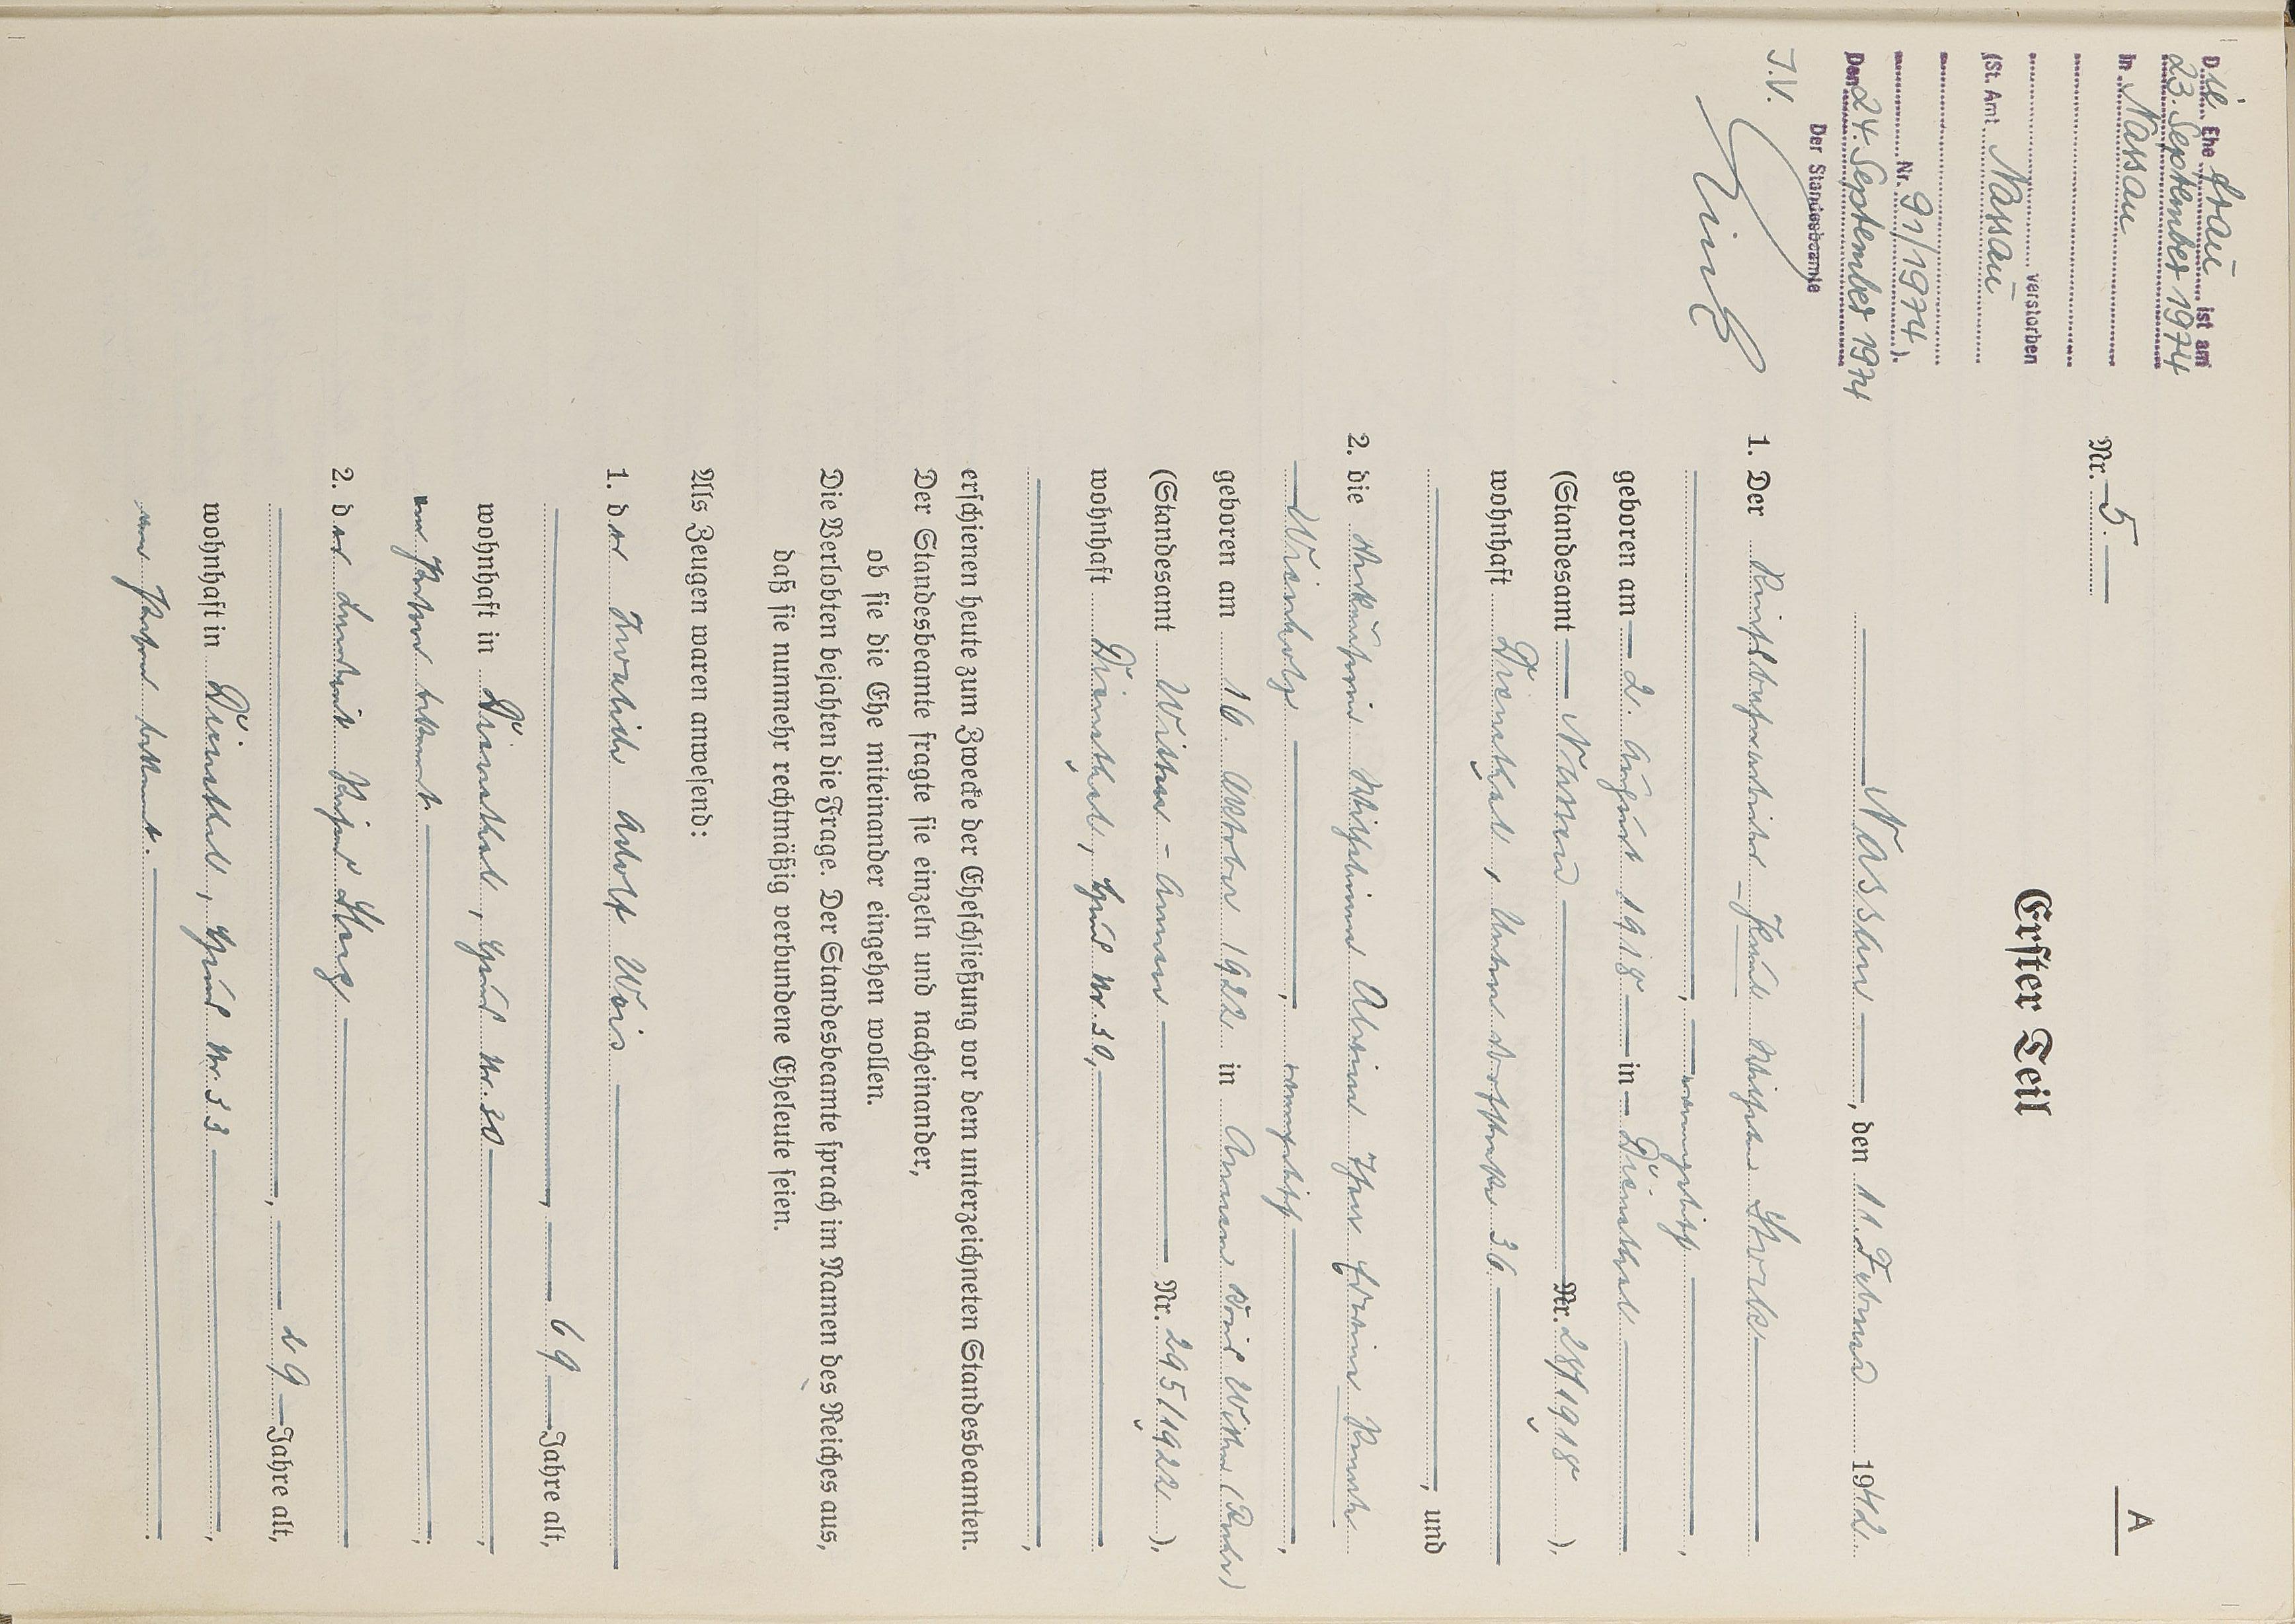 Die Ehefrau ist am
23. September 1974
in Nassau
verstorben
(St. Amt Nassau
Nr. 91/1974).
Den 24. September 1974
Der Standesbeamte
J.V.
A
Nr. 5.
Erster Teil
Nassau, den 11. Februar 1942.
1. Der Karl Wilhelm
evangelisch,
geboren am 2. August 1918 in Dienethal
(Standesamt Nassau Nr. 28/1918),
wohnhaft Dienethal, 36
, und
2. die Verkäuferin Wilhelmine
, evangelisch,
geboren am 16. Oktober 1922 in Annen Witten (Ruhr)
(Standesamt Witten - Annen Nr. 295/1922),
wohnhaft Dienethal, Haus Nr. 30,
,
erschienen heute zum Zwecke der Eheschließung vor dem unterzeichneten Standesbeamten.
Der Standesbeamte fragte sie einzeln und nacheinander,
ob sie die Ehe miteinander eingehen wollen.
Die Verlobten bejahten die Frage. Der Standesbeamte sprach im Namen des Reiches aus,
daß sie nunmehr rechtmäßig verbundene Eheleute seien.
Als Zeugen waren anwesend:
1. der Invalide Adolf
, 69 Jahre alt,
wohnhaft in Dienethal, Haus Nr. 30,
von Person bekannt.;
2. der Landwirt
, 29 Jahre alt,
wohnhaft in Dienethal, Haus Nr. 33,
von Person bekannt.